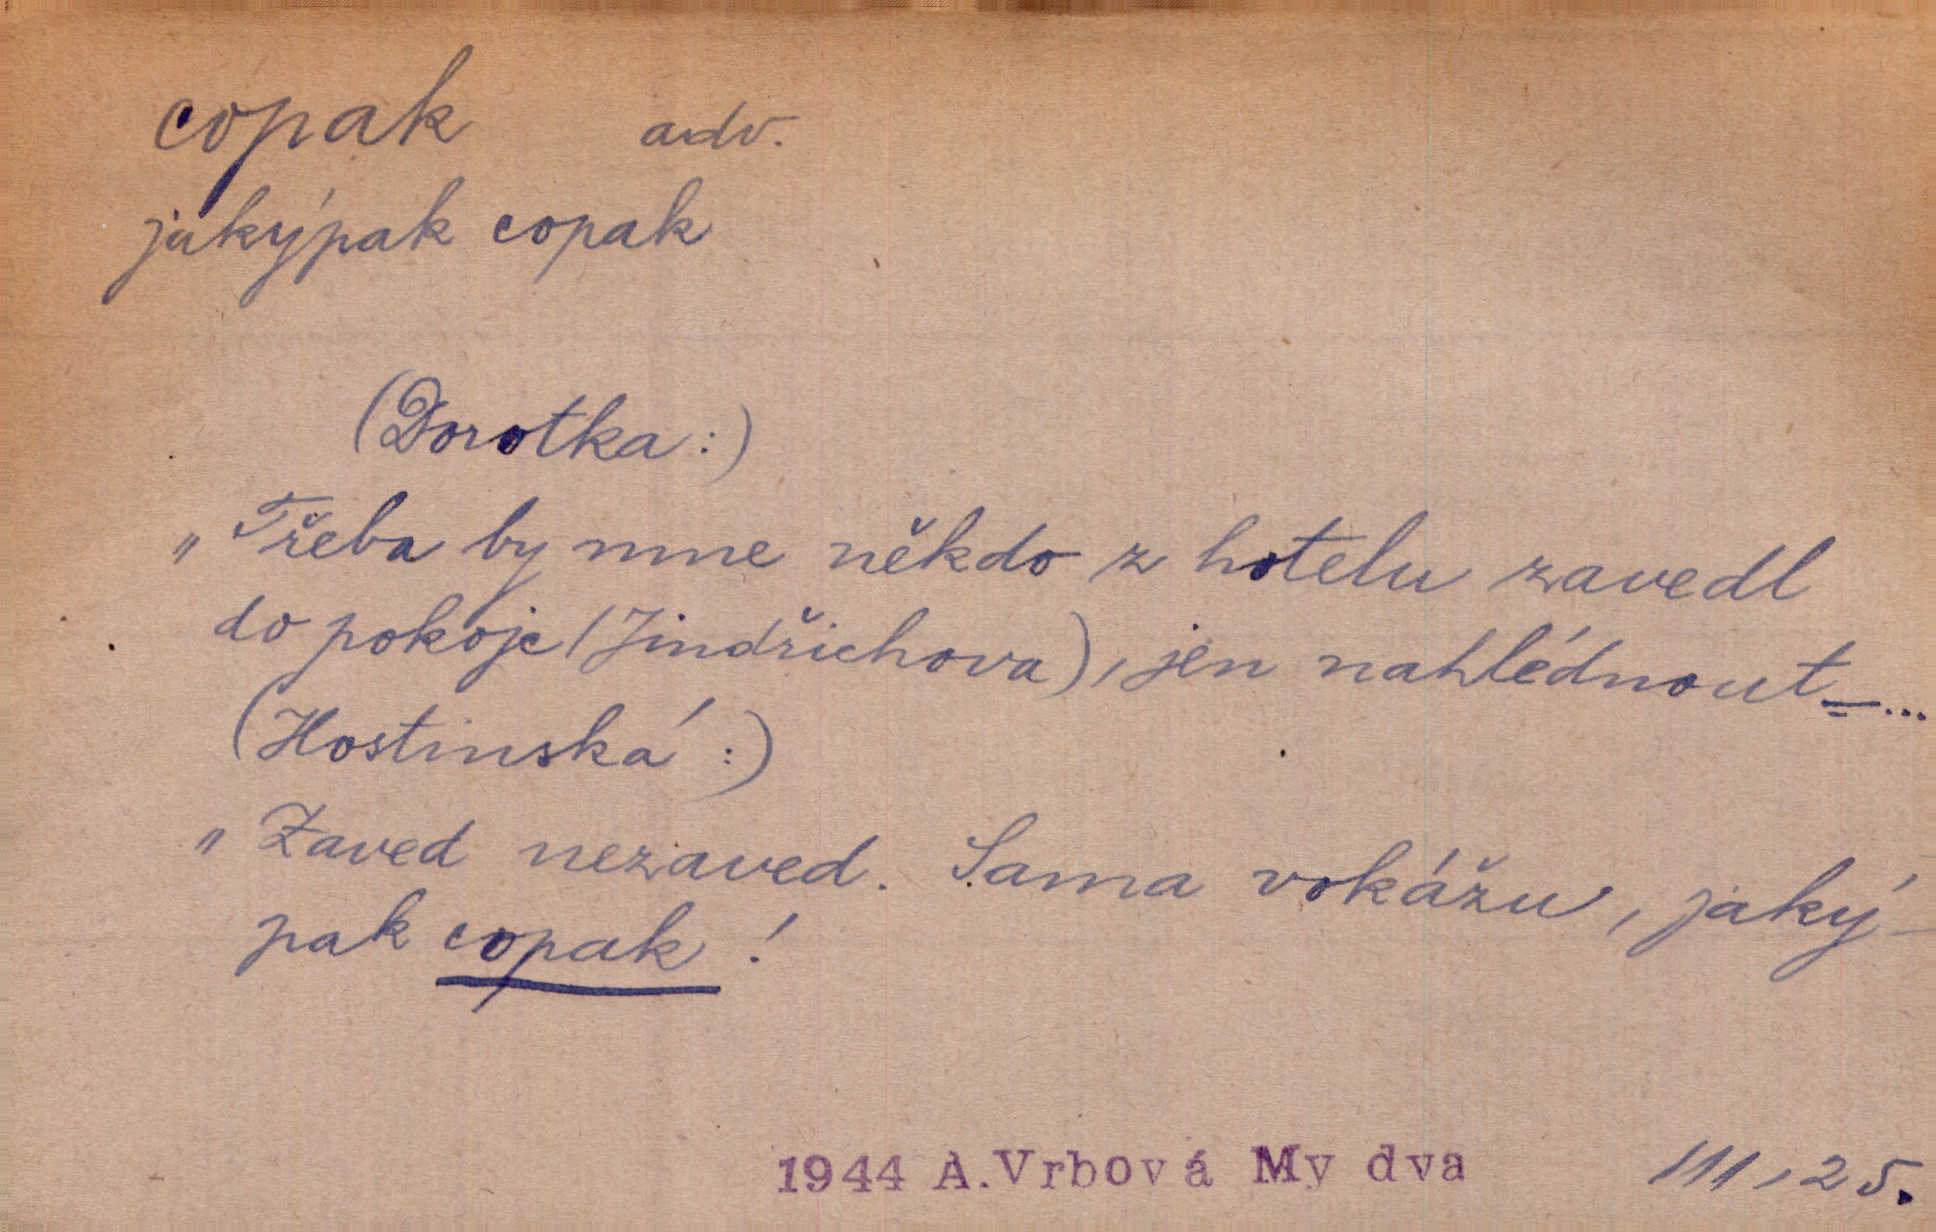 copak adv.
jakýpak copak
(Dorotka:)
„Třeba by mne někdo z hotelu zavedl
do pokoje (Jindřichova), jen nahlédnout –...
(Hostinská:)
„Zaved nezaved. Sama vokážu, jaký-
pak copak!
1944 A.Vrbová My dva III, 25.